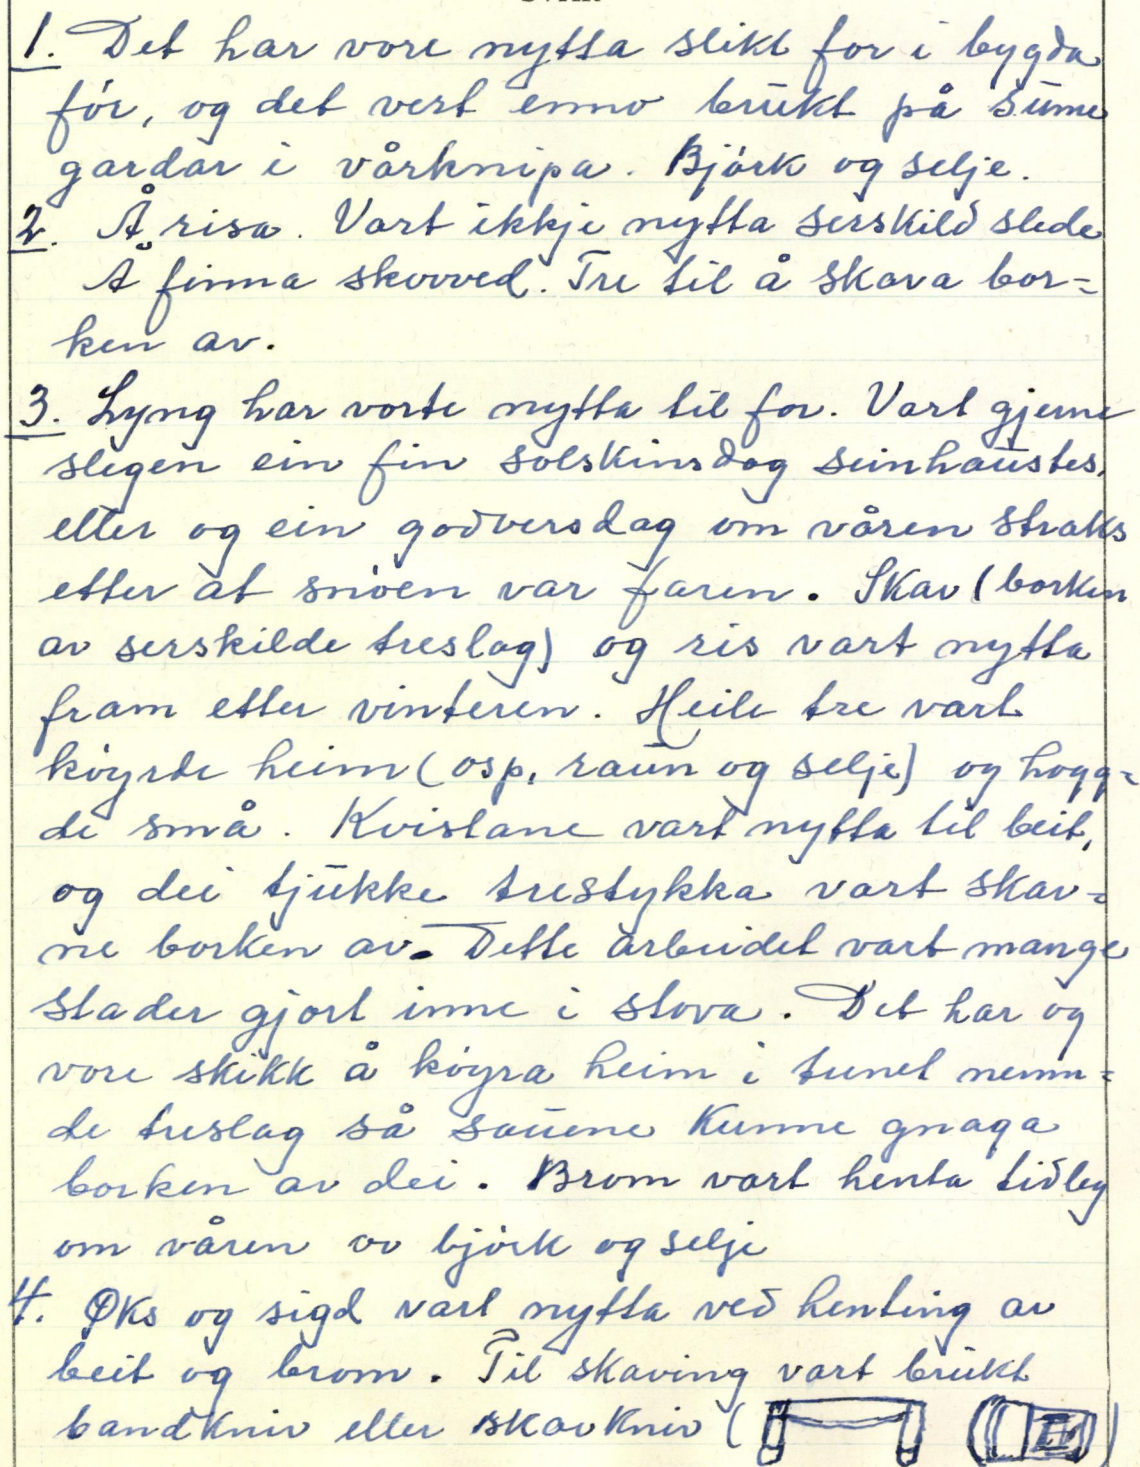 1. Det har vore nytta slikt for i bygda
før, og det vert enno brukt på sume
gardar i vårknipa. Bjørk og selje.
2. Å risa. Vart ikkje nytta serskild slede
Å finna skovved. Tre til å skava bor=
ken av.
3. Lyng har vorte nytta til for. Vart gjerne
slegen ein fin solskinsdag seinhaustes,
eller og ein godversdag om våren straks
etter at snøen var faren. Skav (borken
av serskilde treslag) og ris vart nytta
fram etter vinteren. Heile tre vart
køyrde heim (osp, raun og selje) og hogg=
de små. Kvistane vart nytta til beit,
og dei tjukke trestykka vart skav=
ne borken av. Dette arbeidet vart mange
stader gjort inne i stova. Det har og
vore skikk å køyra heim i tunet nemn=
de treslag så sauene kunne gnaga
borken av dei. Brom vart henta tidleg
om våren av bjørk og selje
4. Øks og sigd vart nytta ved henting av
beit og brom. Til skaving vart brukt
bandkniv eller skavkniv ( )